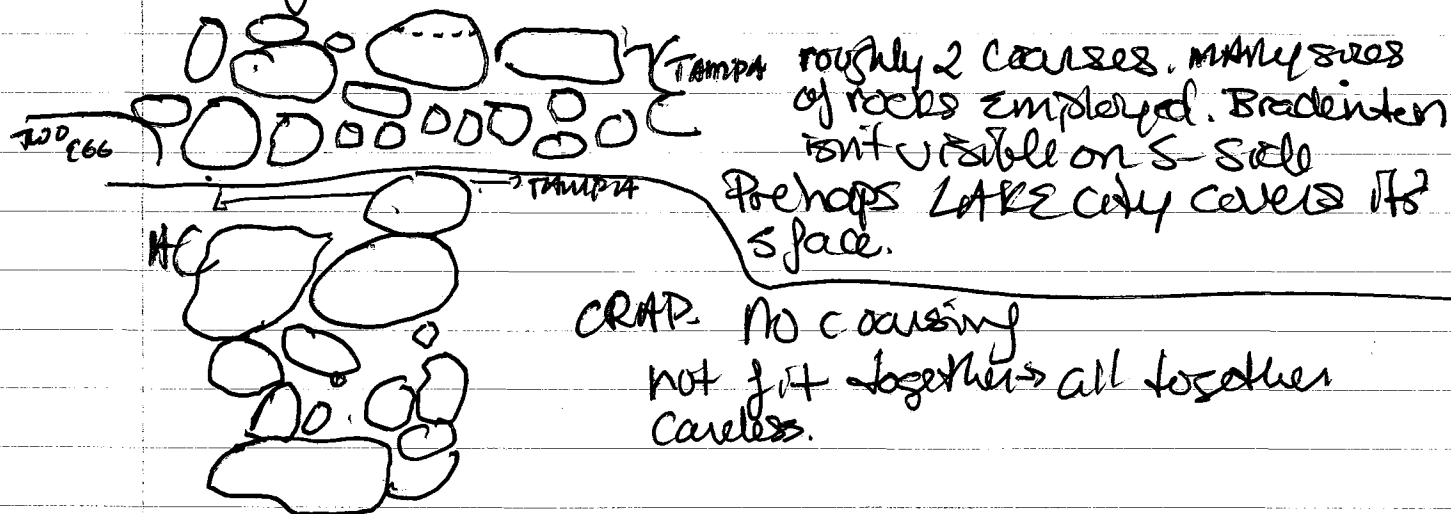 TAMPA roughly 2 Courses. MANY sizes
of rocks Employed. Bradenton
TWO EGG
isn't visible on S-Side
TAMPA
Perhaps LAKE City covers its?
space.
AC
CRAP. No coursing
not fit together → all together
Careless.